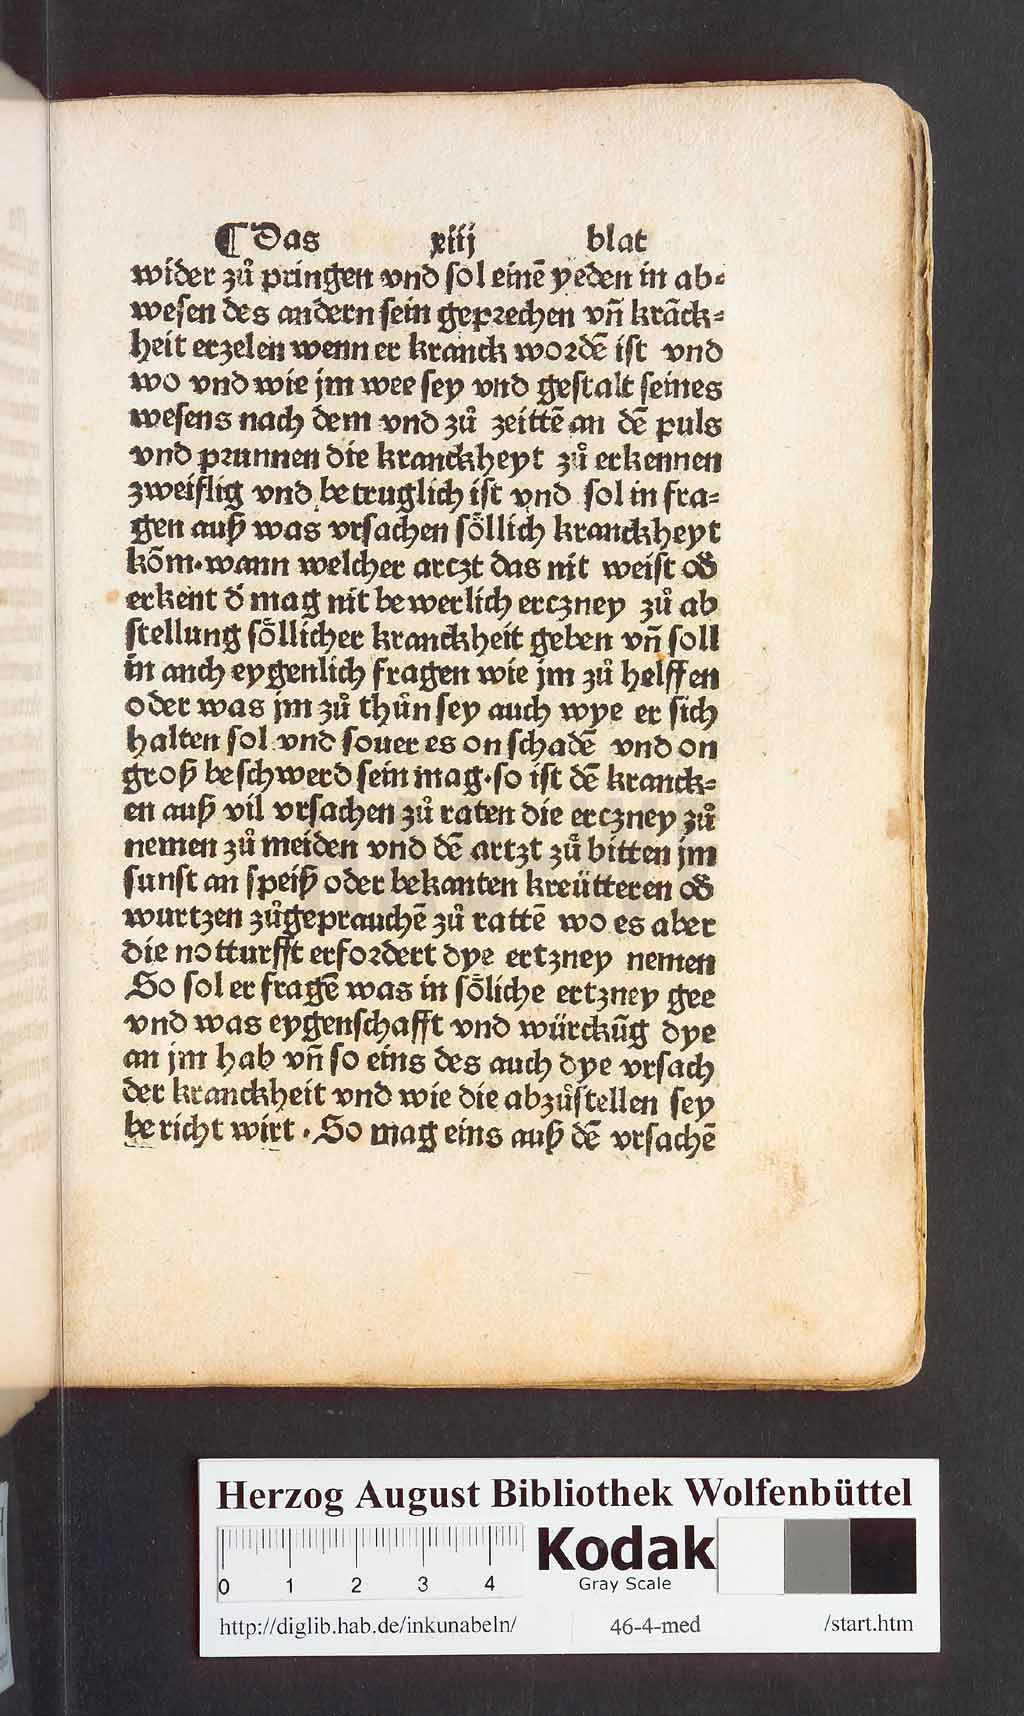 ¶ Das xiij blat
wider zů pringen vnd sol einē yeden in ab⸗
wesen des andern sein geprechen vñ krāck⸗
heit erzelen wenn er kranck wordē ist vnd
wo vnd wie jm wee sey vnd gestalt seines
wesens nach dem vnd zů zeittē an dē puls
vnd prunnen die kranckheyt zů erkennen
zweiflig vnd betruglich ist vnd sol in fra⸗
gen auß was vrsachen soͤllich kranckheyt
kōm·wann welcher arczt das nit weist od̕
erkent d̕ mag nit bewerlich erczney zů ab
stellung soͤllicher kranckheit geben vñ soll
in auch eygenlich fragen wie jm zů helffen
oder was jm zů thůn sey auch wye er sich
halten sol vnd souer es on schadē vnd on
groß beschwerd sein mag·so ist dē kranck⸗
en auß vil vrsachen zů raten die erczney zů
nemen zů meiden vnd dē artzt zů bitten jm
sunst an speiß oder bekanten kreütteren od̕
wurtzen zůgeprauchē zů rattē wo es aber
die notturfft erfordert dye ertzney nemen
So sol er fragē was in soͤliche ertzney gee
vnd was eygenschafft vnd würckūg dye
an jm hab vñ so eins des auch dye vrsach
der kranckheit vnd wie die abzůstellen sey
bericht wirt·So mag eins auß dē vrsachē
Herzog August Bibliothek Wolfenbüttel
0 1 2 3 4
Kodak
Gray Scale
http://diglib.hab.de/inkunabeln/ 46-4-med /start.htm